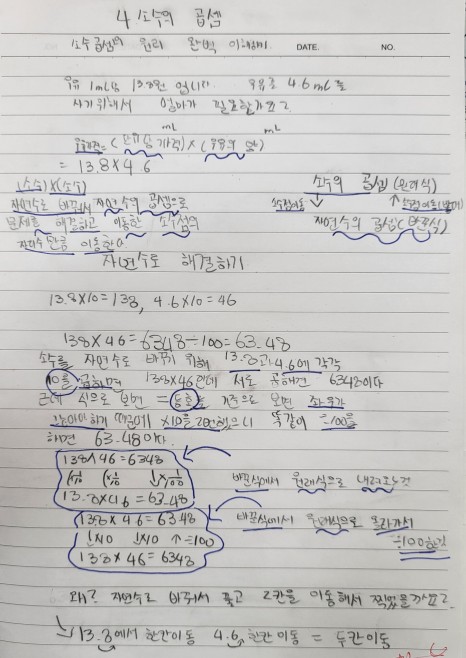 4 소수의 곱셈
소수 곱셈의 원리 완벽 이해하기. DATE. NO.
우유 1mL당 13.8원 입니다. 우유를 4.6mL를
사기위해서 얼마가 필요할까요?
mL mL
= 13.8×4.6
(소수)×(소수)
자연수로 바꿔서 자연수의 곱셈으로
문제를 해결하고 이동한 소수점의
자리수 만큼 이동한다
소수의 곱셈(원래식)
자연수의 곱셈(바꾼식)
자연수로 해결하기
13.8×10=138, 4.6×10=46
138×46=6348÷100=63.48
소수를 자연수로 바꾸기 위해 13.8과 4.6에 각각
10을 곱하면 138×46인데 서로 곱하면 6348이다
근데 식으로 보면 = 등호를 기준으로 보면 좌우가
같아야 하기 때문에 ×10을 2번했으니 똑같이 ÷100을
하면 63.48이다.
138×46=6348
13.8×4.6=63.48
바꾼식에서 원래식으로 내려오는것
13.8×4.6=63.48
↓×10 ↓×10 ↑÷100
138×46=6348
바꾼식에서 원래식으로 올라가서
÷100한것
왜? 자연수로 바꿔서 풀고 2칸을 이동해서 찍었을까요?
13.8에서 한칸이동 4.6 한칸이동 = 두칸이동